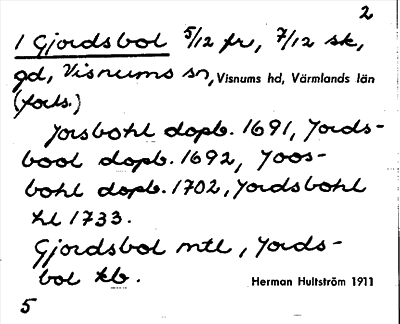 2
1 Gjordsbol 5/12 fr, 7/12 sk,
gd, Visnums sn, Visnums hd, Värmlands län
(forts.)
Jorsbohl dopb. 1691, Jords-
bool dopb. 1692, Joos-
bohl dopb. 1702, Jordsbohl
hl 1733.
Gjordsbol mtl, Jords-
bol kb.
Herman Hultström 1911
5